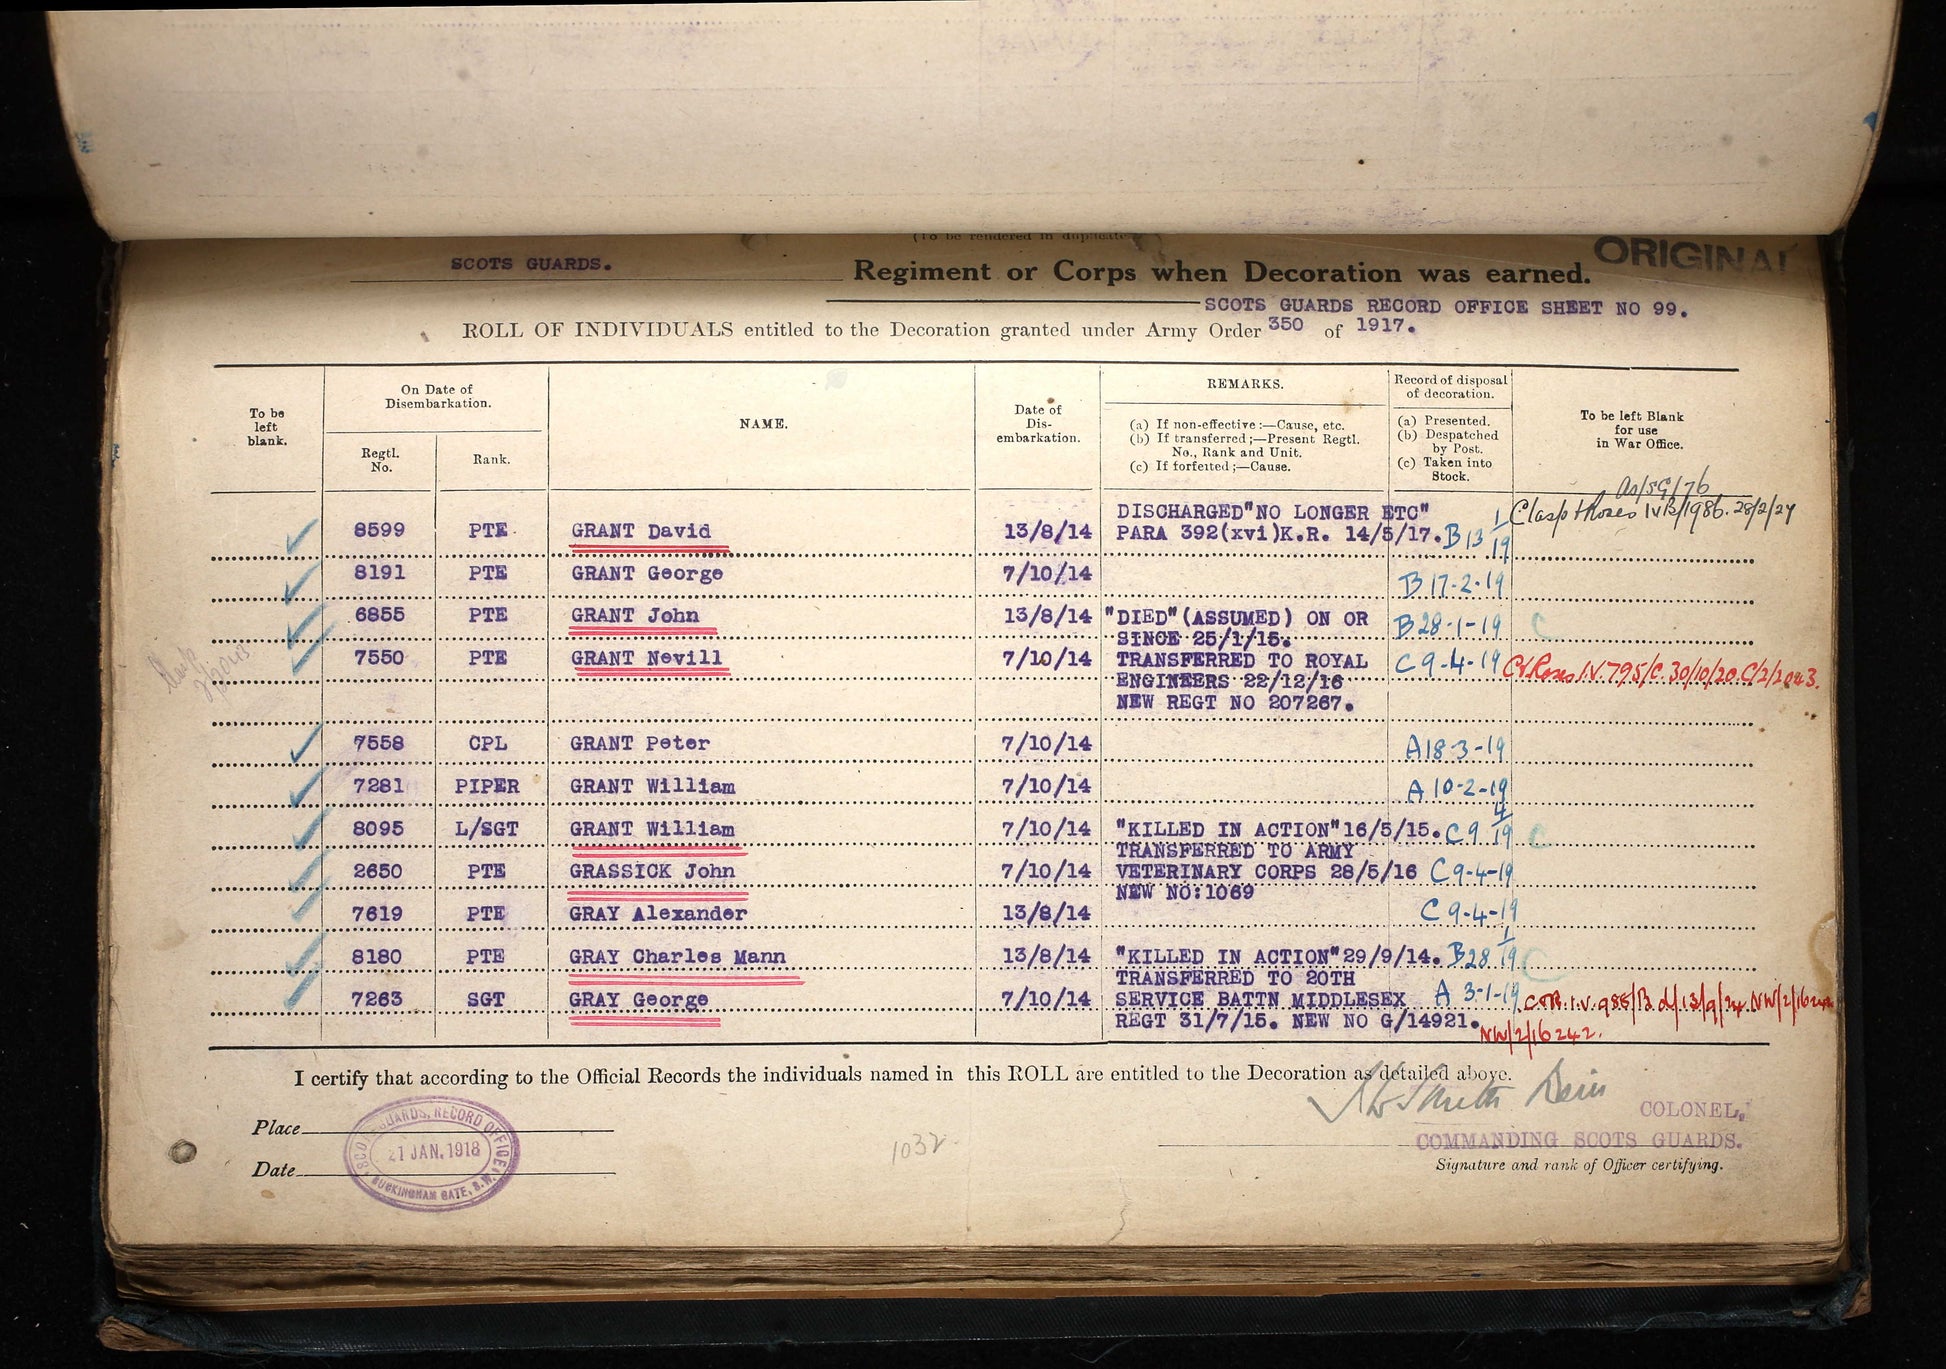 (To be rendered in duplicate
ORIGINAL
SCOTS GUARDS. Regiment or Corps when Decoration was earned.
SCOTS GUARDS RECORD OFFICE SHEET NO 99.
ROLL OF INDIVIDUALS entitled to the Decoration granted under Army Order 350 of 1917.
To be left blank.
On Date of Disembarkation.
Regtl. No.
Rank.
NAME.
Date of Dis-embarkation.
REMARKS.
(a) If non-effective :—Cause, etc.
(b) If transferred ;—Present Regtl. No., Rank and Unit.
(c) If forfeited ;—Cause.
Record of disposal of decoration.
(a) Presented.
(b) Despatched by Post.
(c) Taken into Stock.
To be left Blank for use in War Office.
DISCHARGED"NO LONGER ETC"
8599 PTE GRANT David 13/8/14 PARA 392(xvi)K.R. 14/5/17. B 13 1/19
8191 PTE GRANT George 7/10/14 B 17-2-19
6855 PTE GRANT John 13/8/14 "DIED"(ASSUMED) ON OR B 28-1-19 C
SINCE 25/1/15.
7550 PTE GRANT Nevill 7/10/14 TRANSFERRED TO ROYAL C 9-4-19 C & Roses I.V. 795/C. 30/10/20. C/2/2043.
ENGINEERS 22/12/16
NEW REGT NO 207267.
7558 CPL GRANT Peter 7/10/14 A 18-3-19
7281 PIPER GRANT William 7/10/14 A 10-2-19
8095 L/SGT GRANT William 7/10/14 "KILLED IN ACTION"16/5/15. C 9 4/19 C
TRANSFERRED TO ARMY
2650 PTE GRASSICK John 7/10/14 VETERINARY CORPS 28/5/16 C 9-4-19
NEW NO:1069
7619 PTE GRAY Alexander 13/8/14 C 9-4-19
8180 PTE GRAY Charles Mann 13/8/14 "KILLED IN ACTION"29/9/14. B 28 1/19 C
TRANSFERRED TO 20TH
7263 SGT GRAY George 7/10/14 SERVICE BATTN MIDDLESEX A 3-1-19
REGT 31/7/15. NEW NO G/14921.
NW/2/16242.
I certify that according to the Official Records the individuals named in this ROLL are entitled to the Decoration as detailed above.
COLONEL,
Place
COMMANDING SCOTS GUARDS.
Signature and rank of Officer certifying.
Date
SCOTS GUARDS, RECORD OFFICE
21 JAN. 1918
BUCKINGHAM GATE, S.W.
1032